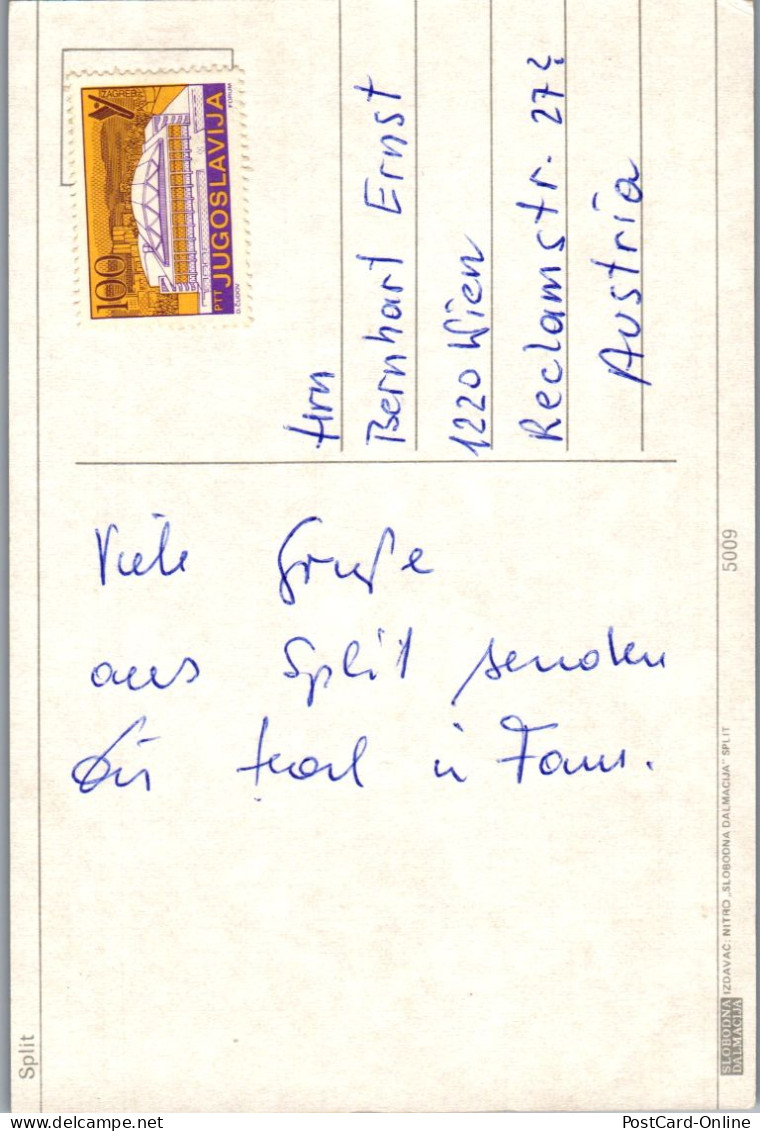 Split
100
PTT JUGOSLAVIJA
ZAGREB
D. ČUDOV
FORUM
Hrn
Bernhart Ernst
1220 Wien
Reclamstr. 27
Austria
Viele Grüße
aus Split senden
Dir Karl u Fam.
5009
SLOBODNA DALMACIJA
IZDAVAČ: NITRO „SLOBODNA DALMACIJA" SPLIT
PostCard-Online